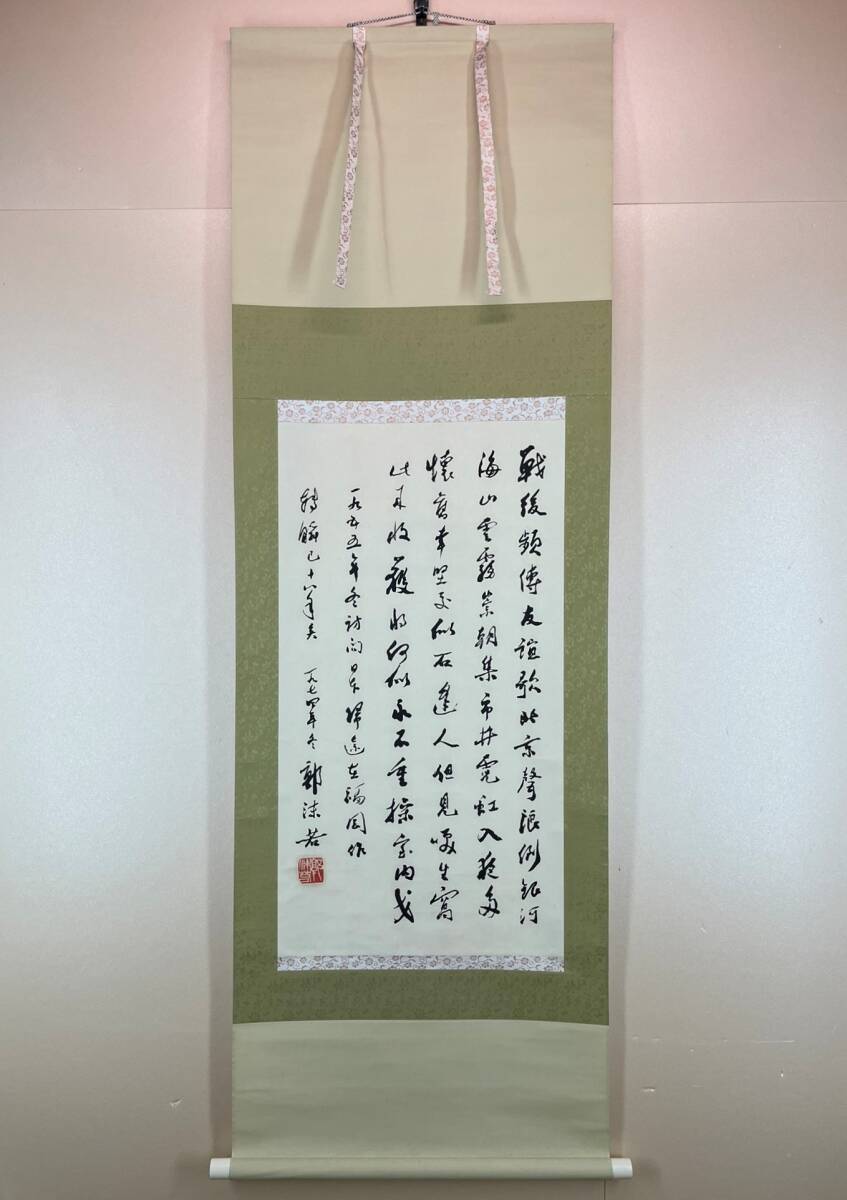 戰後頻傳友誼歌北京聲浪倒銀河
海山雲霧崇朝集市井霓虹入夜多
懷舊幸堅交似石逢人但見咲生窩
此來收穫將何似永不重操室内戈
一九五五年冬訪问日本歸途在福岡作
轉瞬已十八年矣 一九七四年冬 郭沫若